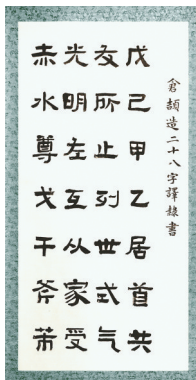 倉頡造二十八字譯隸書
戊己甲乙居首共
友所止列世式气
光明左互从家受
赤水尊戈干斧芾